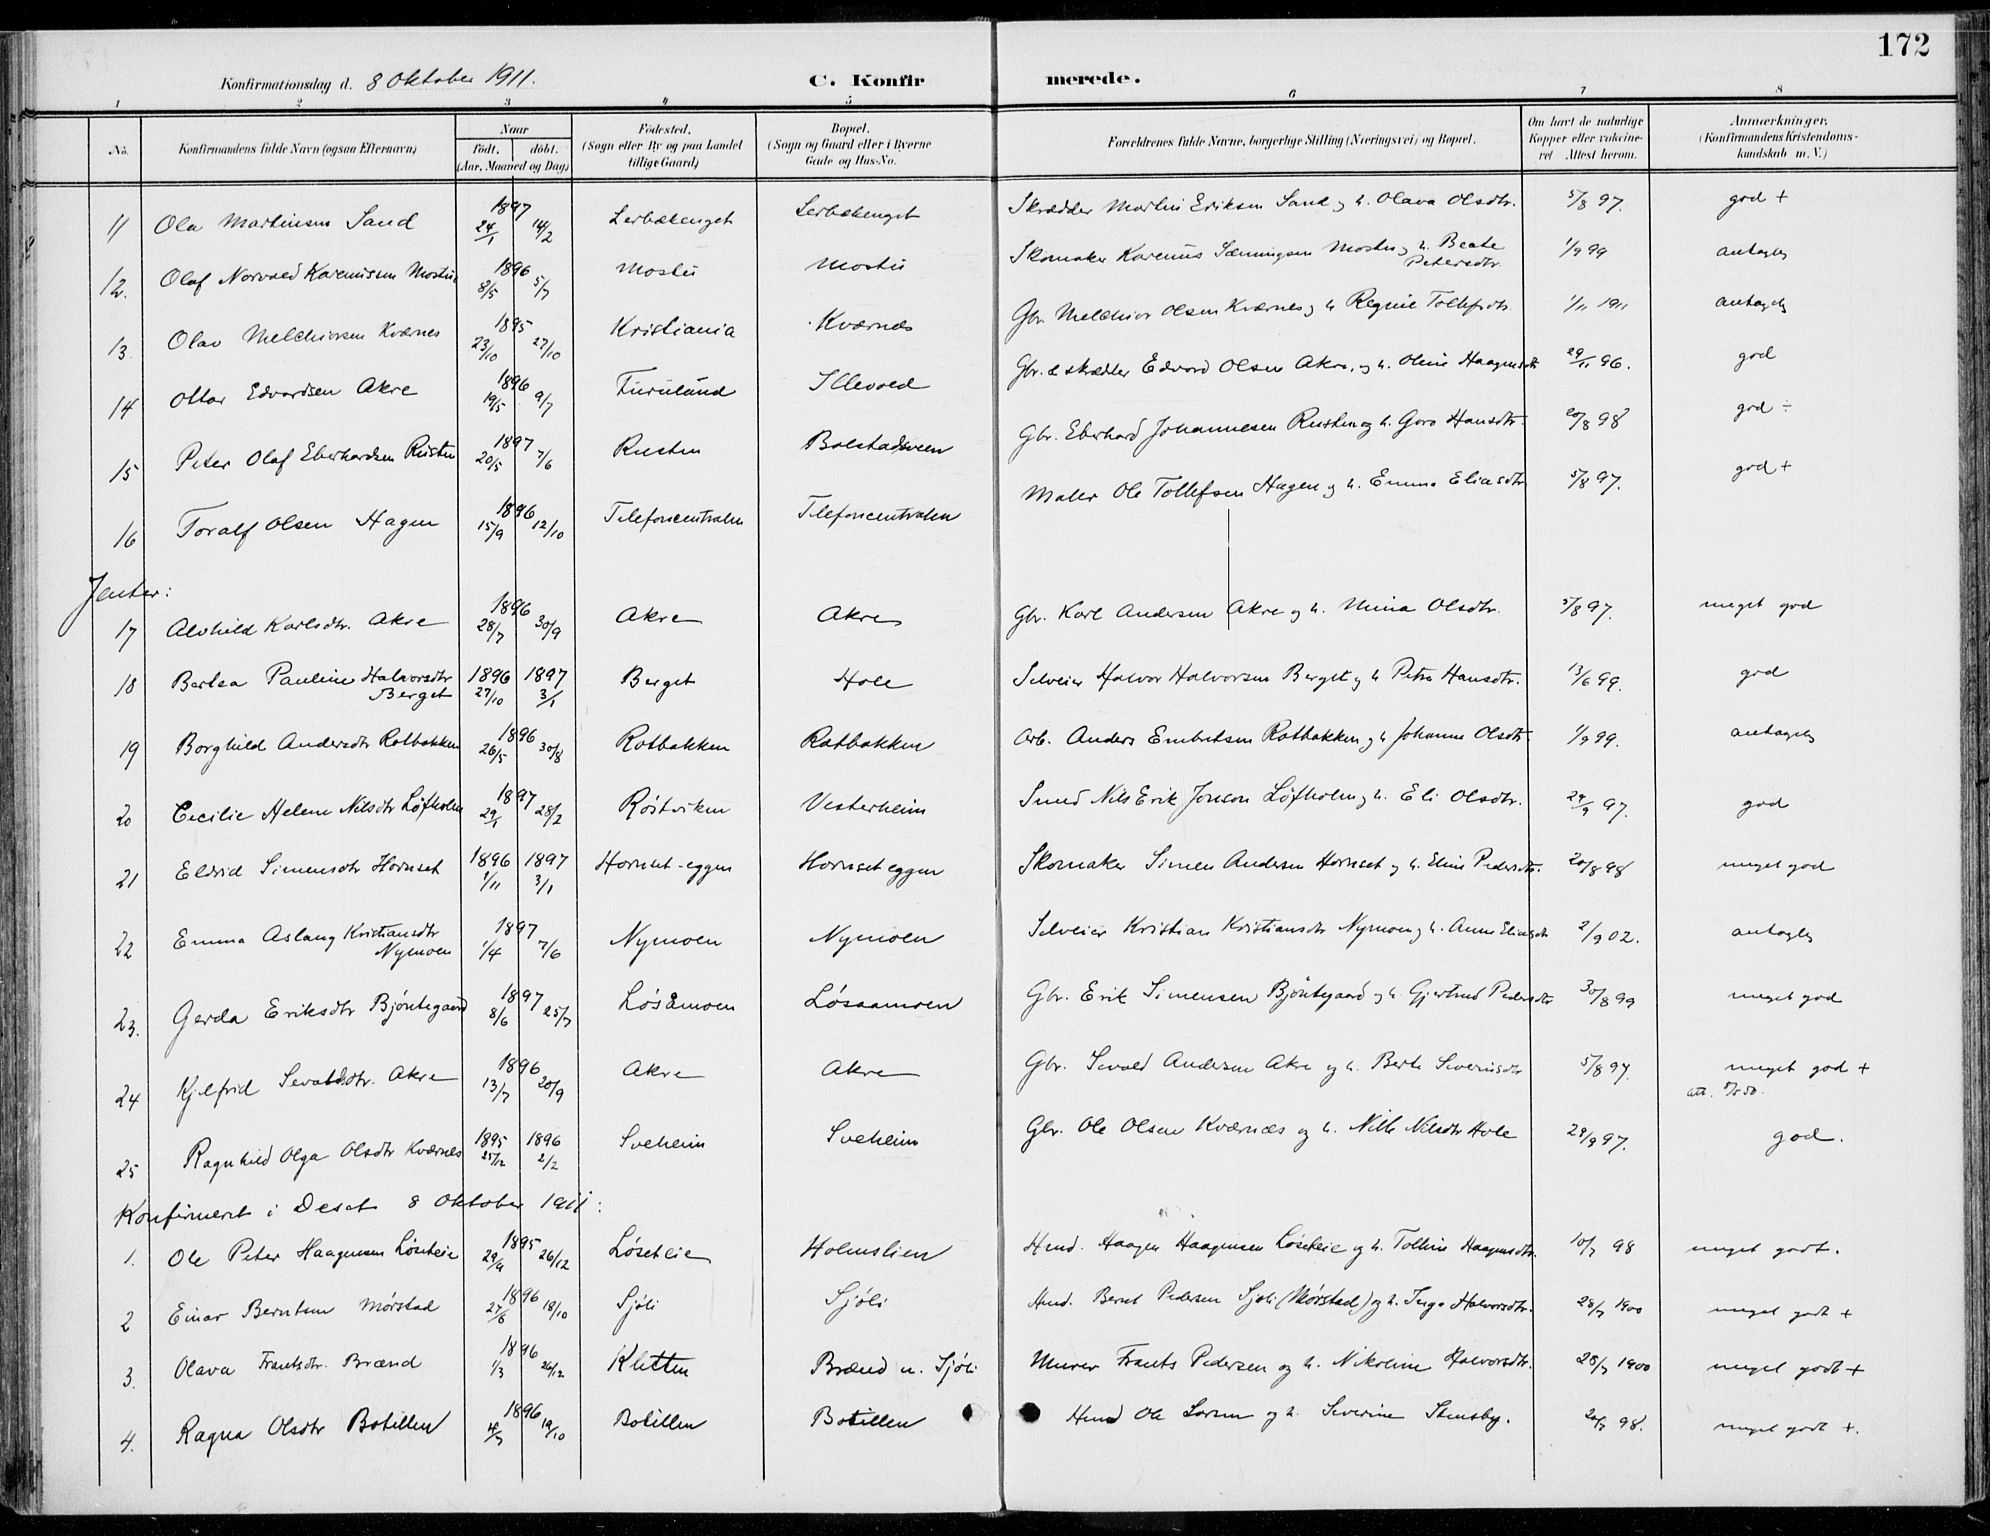 172
Konfirmationsdag d. 8 Oktober 1911.
C. Konfirmerede.
1 2 3 4 5 6 7 8
No.
Konfirmandens fulde Navn (ogsaa Efternavn)
Naar
født. døbt.
(Aar, Maaned og Dag)
Fødested.
(Sogn eller By og paa Landet
tillige Gaard)
Bopæl.
(Sogn og Gaard eller i Byerne
Gade og Hus-No.
Forældrenes fulde Navne, borgerlige Stilling (Næringsvei) og Bopæl.
Om havt de naturlige
Kopper eller vaccine-
ret Attest herom.
Anmærkninger.
(Konfirmandens Kristendoms-
kundskab m. V.)
11 Ola Martinsen Sand 1897 24/1 14/2 Lerbækenget Lerbækenget Skrædder Martin Eriksen Sand og h. Olava Olsdtr. 5/8 97. god +
12. Olaf Norvald Karenusen Mostu 1896 8/5 5/7 Mostu Mostu Skomaker Karenus Sæmingsen Mostu og h. Beate Petersdtr. 1/9 99 antagelig
13. Olav Melchiorsen Kværnes 1895 23/10 27/10 Kristiania Kværnes Gbr. Melchior Olsen Kværnes og h. Regine Tollefsdtr. 1/11 1911 antagelig
14 Ottar Edvardsen Akre 1896 19/5 9/7 Furulund Illevold Gbr. & skrædder Edvard Olsen Akre, og h. Oline Haagensdtr 29/11 96. god
15 Peter Olaf Eberhardsen Rusten 1897 20/5 7/6 Rusten Bolstadsveen Gbr. Eberhard Johannesen Rusten og h. Goro Hansdtr. 20/8 98 god ÷
16 Toralf Olsen Hagen 1896 15/9 12/10 Telefoncentralen Telefoncentralen Maler Ole Tollefsen Hagen og h. Emma Eliasdtr 5/8 97. god +
Jenter:
17 Alvhild Karlsdtr. Akre 1896 28/7 30/9 Akre Akre Gbr. Karl Andersen Akre og h. Mina Olsdtr. 5/8 97. meget god
18 Bertea Pauline Halvorsdtr Berget 1896 27/10 1897 3/1 Berget Hole Selveier Halvor Halvorsen Berget og h. Petra Hansdtr. 13/6 99. god
19 Borghild Andersdtr Rotbakken 1896 26/5 30/8 Rotbakken Rotbakken Arb. Anders Embretsen Rotbakken og h. Johanne Olsdtr. 1/9 99. antagelig
20 Cecilie Helene Nilsdtr Løfholm 1897 29/1 28/2 Røstviken Vesterheim Smed Nils Erik Jonson Løfholm og h. Eli Olsdtr. 29/9 97. god
21 Eldrid Simensdtr Hornset 1896 1/11 1897 3/1 Hornset-eggen Hornseteggen Skomaker Simen Andersen Hornset og h. Eline Pedersdtr. 20/8 98 meget god
22 Emma Aslaug Kristiansdtr Nymoen 1897 1/4 7/6 Nymoen Nymoen Selveier Kristian Kristiansdtr Nymoen og h. Anne Eliasdtr 2/9 02. antagelig
23. Gerda Eriksdtr Bjøntegaard 1897 8/6 25/7 Løsåmoen Løsaamoen Gbr. Erik Simensen Bjøntegaard og h. Gjertrud Pedersdtr 30/8 99 meget god
24 Kjelfrid Sevaldsdtr. Akre 1896 13/7 20/9 Akre Akre Gbr. Sevald Andersen Akre og h. Berte Severinsdtr 5/8 97. meget god +
att.
25 Ragnhild Olga Olsdtr Kværnes 1895 25/12 1896 2/2 Sveheim Sveheim Gbr. Ole Olsen Kværnes og h. Nille Nilsdtr Hole 29/9 97. god.
Konfirmeret i Deset 8 Oktober 1911:
1. Ole Peter Haagensen Løsetlie 1895 29/9 26/12 Løsetlie Holmslien Hmd. Haagen Haagensen Løsetlie og h. Tolline Haagensdtr. 10/7 98 meget godt.
2 Einar Berntsen Mørstad 1896 27/6 18/10 Sjøli Sjøli Hmd. Bernt Pedersen Sjøli (Mørstad) og h. Inga Halvorsdtr. 28/7 1900 meget godt +
3. Olava Frantsdtr. Brænd 1896 1/3 26/12 Kletten Brænd u. Sjøli Murer Frants Pedersen og h. Nikoline Halvorsdtr. 28/7 1900 meget godt +
4. Ragna Olsdtr Botillen 1896 19/10 Botillen Botillen Hmd Ole Larsen og h. Severine Stensby. 20/7 98. meget godt +.